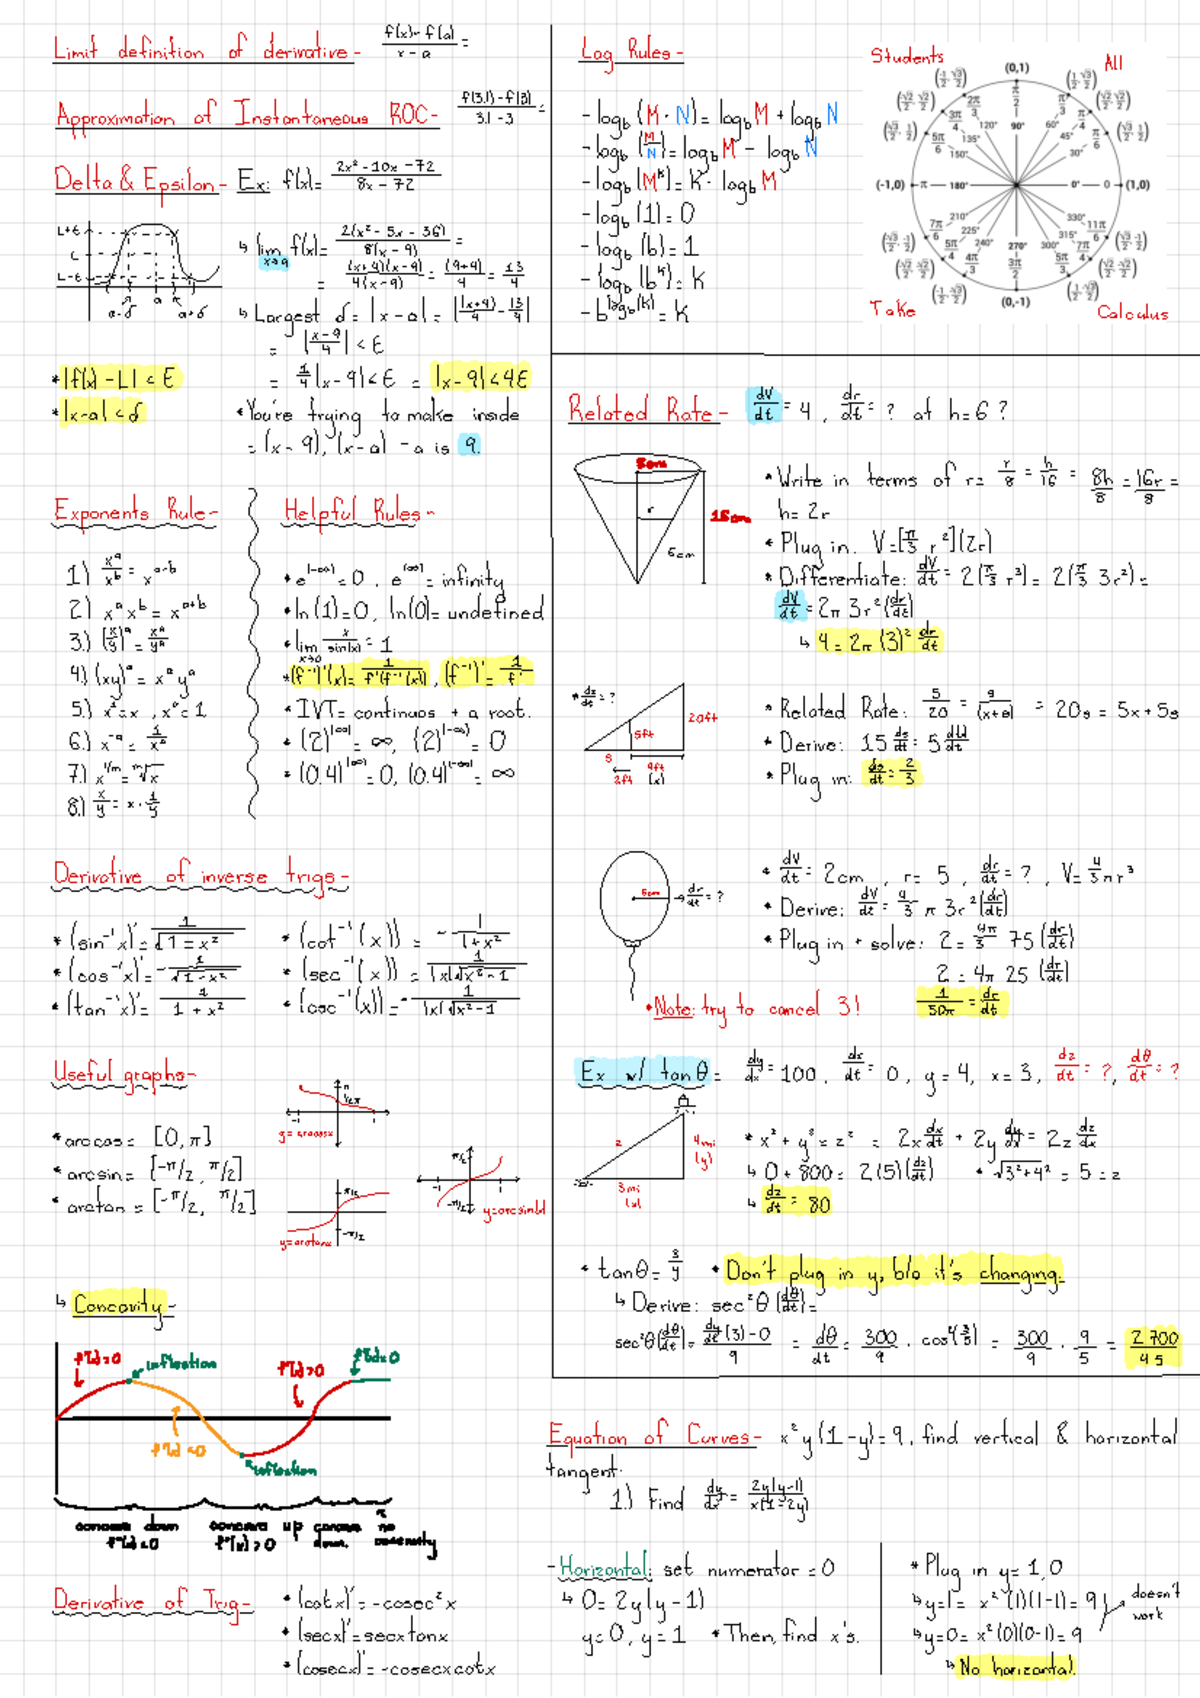 Limit definition of derivative- f(x)-f(a) / x-a =
Approximation of Instantaneous ROC- f(3.1)-f(3) / 3.1-3 =
Delta & Epsilon- Ex: f(x)= 2x²-10x-72 / 8x-72
L+ε
L
L-ε
a-δ a a+δ
↳ lim x→9 f(x)= 2(x²-5x-36) / 8(x-9) =
= (x+4)(x-9) / 4(x-9) = (9+4)/4 = 13/4
↳ Largest δ= |x-a| = |(x+4)/4 - 13/4|
= |x-9 / 4| < ε
*|f(x)-L| < ε
= 1/4 |x-9| < ε = |x-9| < 4ε
*|x-a| < δ
*You're trying to make inside
= (x-9), (x-a) -a is 9.
Exponents Rule-
1) x^a/x^b = x^(a-b)
2.) x^a x^b = x^(a+b)
3.) (x/y)^a = x^a/y^a
4.) (xy)^a = x^a y^a
5.) x¹=x, x⁰=1
6.) x^-a = 1/x^a
7.) x^(1/m) = m√x
8.) x/y = x · 1/y
Helpful Rules-
*e^(-∞)=0, e^(∞)= infinity
*ln(1)=0, ln(0)= undefined
*lim x→0 x/sin(x) = 1
*(f⁻¹)'(x)= 1/f'(f⁻¹(x)), (f⁻¹)'= 1/f'
*IVT= continuos + a root.
*(2)^(∞) = ∞, (2)^(-∞) = 0
*(0.4)^(∞) = 0, (0.4)^(-∞) = ∞
Derivative of inverse trigs-
*(sin⁻¹x)'= 1/√1-x²
*(cos⁻¹x)'= -1/√1-x²
*(tan⁻¹x)'= 1/1+x²
*(cot⁻¹(x)) = -1/1+x²
*(sec⁻¹(x)) = 1/|x|√x²-1
*(csc⁻¹(x)) = -1/|x|√x²-1
Useful graphs-
*arccos= [0, π]
*arcsin= [-π/2, π/2]
*arctan = [-π/2, π/2]
π
π/2
-1 1
y=arccosx
π/2
-1 1
-π/2
y=arcsin(x)
π/2
-π/2
y=arctanx
↳ Concavity-
f'(x)>0
inflection
f'(x)<0
inflection
f'(x)>0
f'(x)=0
concave down
f''(x)<0
concave up
f''(x)>0
concave down.
no concavity
Derivative of Trig-
*(cotx)'= -cosec²x
*(secx)'= secxtanx
*(cosecx)'= -cosecxcotx
Log Rules-
-log_b (M · N)= log_b M + log_b N
-log_b (M/N)= log_b M - log_b N
-log_b (M^K)= K · log_b M
-log_b (1)= 0
-log_b (b)= 1
-log_b (b^K)= K
-b^(log_b(K)) = K
Students
All
Take
Calculus
(0,1)
(-1/2, √3/2) (1/2, √3/2)
(-√2/2, √2/2) (√2/2, √2/2)
(-√3/2, 1/2) (√3/2, 1/2)
2π/3 π/2 π/3
3π/4 120° 90° 60° π/4
5π/6 135° 45° π/6
150° 30°
(-1,0) π 180° 0° 0 (1,0)
210° 330°
7π/6 225° 315° 11π/6
5π/4 240° 270° 300° 7π/4
4π/3 3π/2 5π/3
(0,-1)
Related Rate- dV/dt = 4, dr/dt = ? at h=6?
8cm
r
16cm
6cm
*Write in terms of r= r/8 = h/16 = 8h/8 = 16r/8 =
h= 2r
*Plug in. V=[π/3 r²](2r)
*Differentiate: dV/dt = 2(π/3 r³)= 2(π/3 3r²)=
dV/dt = 2π 3r²(dr/dt)
↳ 4= 2π(3)² dr/dt
20ft
5ft
s
2ft
9ft
(x)
*Related Rate: 5/20 = s/(x+s) = 20s = 5x+5s
*Plug in: ds/dt = 2/3
5cm
dr/dt = ?
*dV/dt = 2cm, r= 5, dr/dt = ?, V= 4/3 πr³
*Derive: dV/dt = 4/3 π 3r²(dr/dt)
*Plug in + solve: 2= 4π/3 75(dr/dt)
2 = 4π 25 (dr/dt)
*Note: try to cancel 3!
1/50π = dr/dt
Ex w/ tanθ= dy/dx = 100, dx/dt = 0, y=4, x=3, dz/dt = ?, dθ/dt = ?
z
4mi
(y)
3mi
(x)
*x²+y²=z² = 2x dx/dt + 2y dy/dx = 2z dz/dx
↳ 0+800= 2(5)(dz/dt) *√3²+4² = 5 = z
↳ dz/dt = 80
*tanθ= 3/y *Don't plug in y, b/c it's changing.
↳ Derive: sec²θ(dθ/dt)=
sec²θ(dθ/dt)= dy/dt(3)-0 / 9 = dθ/dt = 300/9 · cos²(3/5) = 300/9 · 9/5 = 2700/45
Equation of Curves- x²y(1-y)=9, find vertical & horizontal
tangent.
1.) Find dy/dx = 2y(y-1) / x(1-2y)
-Horizontal: set numerator=0
↳ 0= 2y(y-1)
y=0, y=1 *Then, find x's.
*Plug in y= 1,0
↳y=1= x²(1)(1-1)= 9
↳y=0= x²(0)(0-1)=9
doesn't work
↳ No horizontal.